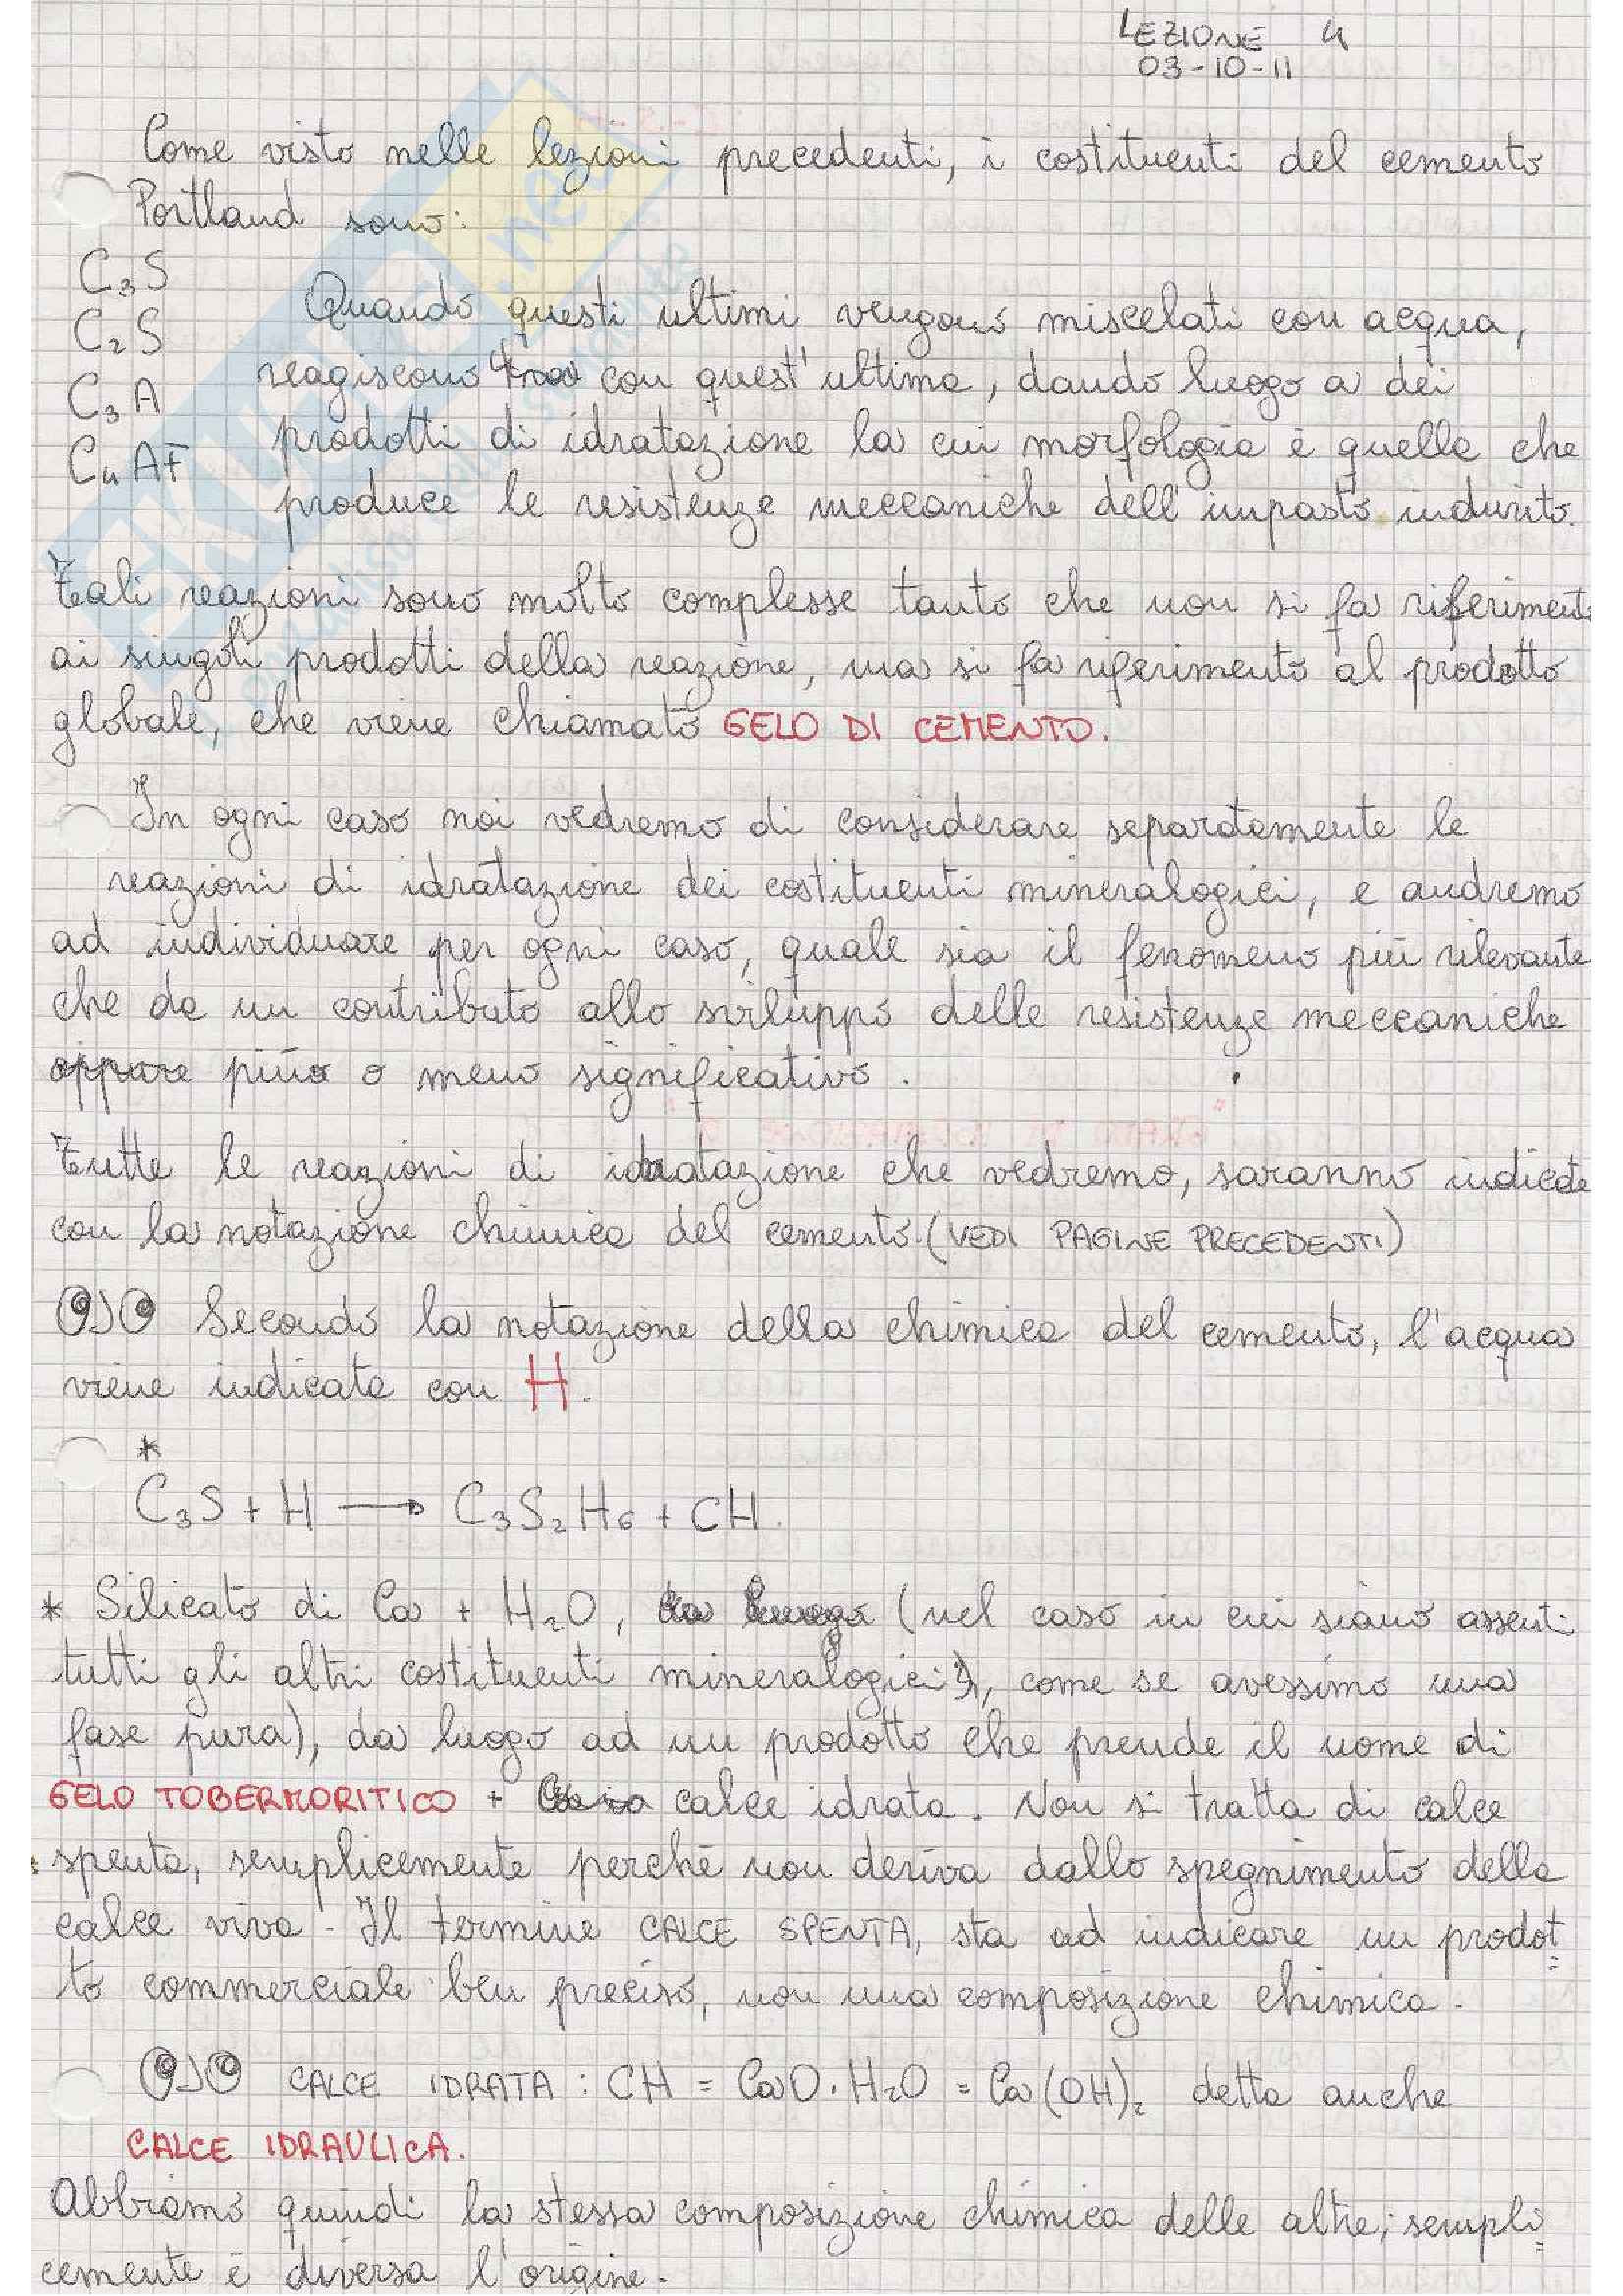 LEZIONE 4
03-10-11
Come visto nelle lezioni precedenti, i costituenti del cemento
Portland sono:
C₃S
C₂S
C₃A
C₄AF̄
Quando questi ultimi vengono miscelati con acqua,
reagiscono con quest'ultima, dando luogo a dei
prodotti di idratazione la cui morfologia è quella che
produce le resistenze meccaniche dell'impasto indurito.
Tali reazioni sono molto complesse tanto che non si fa riferimento
ai singoli prodotti della reazione, ma si fa riferimento al prodotto
globale, che viene chiamato GELO DI CEMENTO.
In ogni caso noi vedremo di considerare separatamente le
reazioni di idratazione dei costituenti mineralogici, e andremo
ad individuare per ogni caso, quale sia il fenomeno più rilevante
che da un contributo allo sviluppo delle resistenze meccaniche
oppure più o meno significativo.
Tutte le reazioni di idratazione che vedremo, saranno indicate
con la notazione chimica del cemento. (VEDI PAGINE PRECEDENTI)
Secondo la notazione della chimica del cemento, l'acqua
viene indicata con H.
*
C₃S + H → C₃S₂H₆ + CH.
* Silicato di Ca + H₂O, (nel caso in cui siano assenti
tutti gli altri costituenti mineralogici), come se avessimo una
fase pura), da luogo ad un prodotto che prende il nome di
GELO TOBERMORITICO + calce idrata. Non si tratta di calce
spenta, semplicemente perché non deriva dallo spegnimento della
calce viva. Il termine CALCE SPENTA, sta ad indicare un prodot
to commerciale ben preciso, non una composizione chimica.
CALCE IDRATA : CH = CaO·H₂O = Ca(OH)₂ detta anche
CALCE IDRAULICA.
Abbiamo quindi la stessa composizione chimica delle altre; sempli
cemente è diversa l'origine.